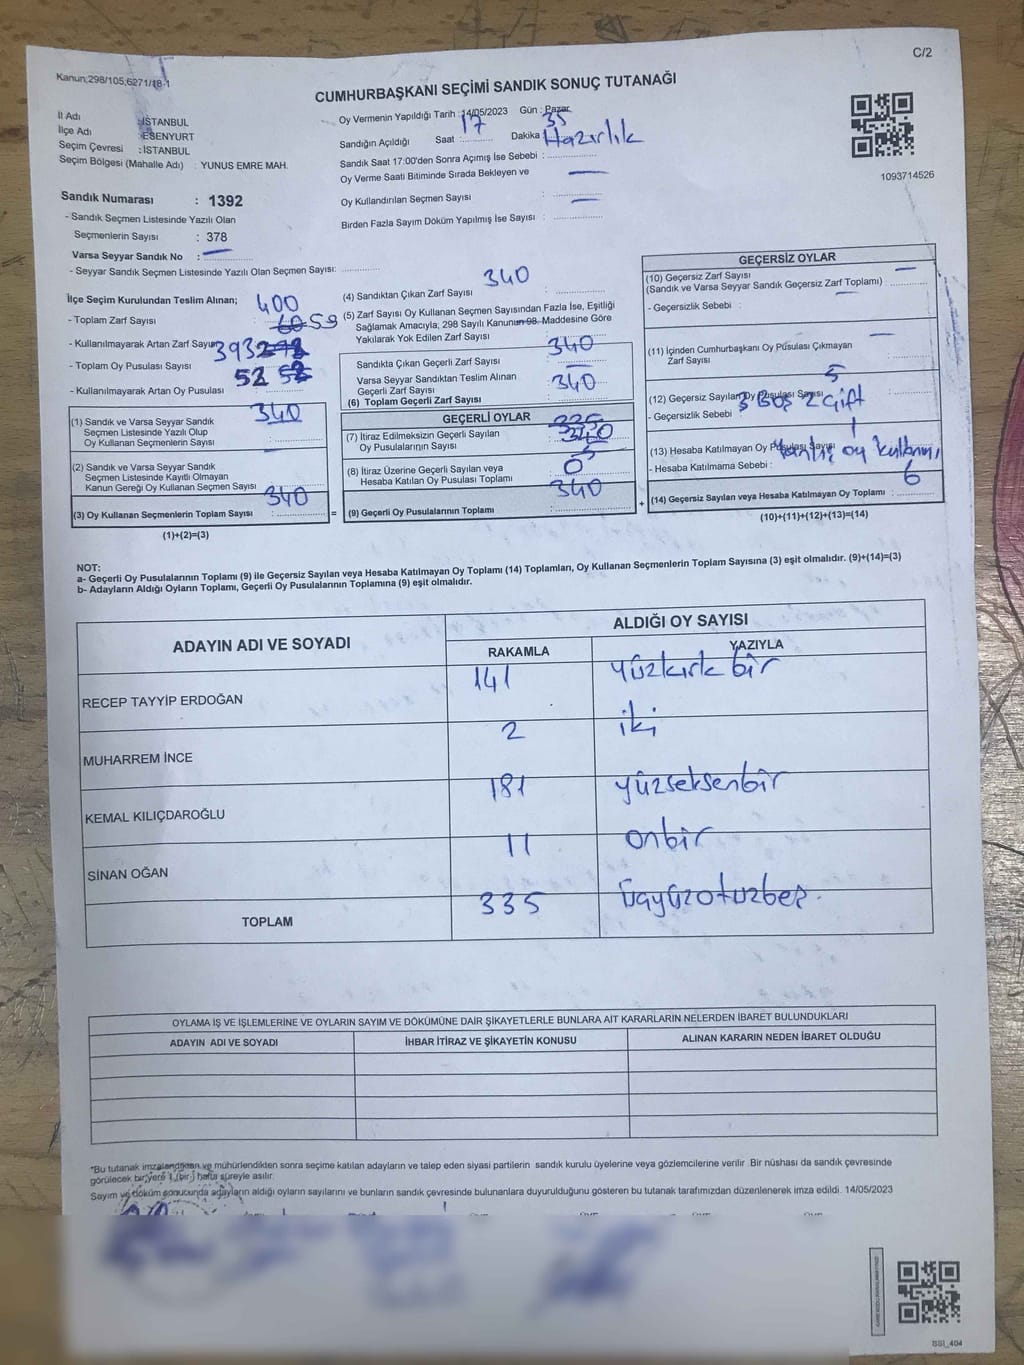 C/2
Kanun;298/105,6271/18-1
CUMHURBAŞKANI SEÇİMİ SANDIK SONUÇ TUTANAĞI
1093714526
İl Adı : İSTANBUL
İlçe Adı : ESENYURT
Seçim Çevresi : İSTANBUL
Seçim Bölgesi (Mahalle Adı) : YUNUS EMRE MAH.
Oy Vermenin Yapıldığı Tarih : 14/05/2023 Gün : Pazar
Sandığın Açıldığı Saat : 17 Dakika : 35
Sandık Saat 17:00'den Sonra Açımış İse Sebebi : Hazırlık
Oy Verme Saati Bitiminde Sırada Bekleyen ve
Oy Kullandırılan Seçmen Sayısı : —
Birden Fazla Sayım Döküm Yapılmış İse Sayısı : —
Sandık Numarası : 1392
- Sandık Seçmen Listesinde Yazılı Olan
Seçmenlerin Sayısı : 378
Varsa Seyyar Sandık No : —
- Seyyar Sandık Seçmen Listesinde Yazılı Olan Seçmen Sayısı:
İlçe Seçim Kurulundan Teslim Alınan;
- Toplam Zarf Sayısı 400
- Kullanılmayarak Artan Zarf Sayısı 60 59
- Toplam Oy Pusulası Sayısı 393
- Kullanılmayarak Artan Oy Pusulası 52 52
(1) Sandık ve Varsa Seyyar Sandık 340
Seçmen Listesinde Yazılı Olup
Oy Kullanan Seçmenlerin Sayısı :
(2) Sandık ve Varsa Seyyar Sandık
Seçmen Listesinde Kayıtlı Olmayan
Kanun Gereği Oy Kullanan Seçmen Sayısı :
(3) Oy Kullanan Seçmenlerin Toplam Sayısı : 340 =
(1)+(2)=(3)
(4) Sandıktan Çıkan Zarf Sayısı : 340
(5) Zarf Sayısı Oy Kullanan Seçmen Sayısından Fazla İse, Eşitliği
Sağlamak Amacıyla, 298 Sayılı Kanunun 98. Maddesine Göre
Yakılarak Yok Edilen Zarf Sayısı : —
Sandıkta Çıkan Geçerli Zarf Sayısı : 340
Varsa Seyyar Sandıktan Teslim Alınan
Geçerli Zarf Sayısı : —
(6) Toplam Geçerli Zarf Sayısı : 340
GEÇERLİ OYLAR
(7) İtiraz Edilmeksizin Geçerli Sayılan
Oy Pusulalarının Sayısı : 335 340
(8) İtiraz Üzerine Geçerli Sayılan veya
Hesaba Katılan Oy Pusulası Toplamı : 5 0
(9) Geçerli Oy Pusulalarının Toplamı : 340 +
GEÇERSİZ OYLAR
(10) Geçersiz Zarf Sayısı
(Sandık ve Varsa Seyyar Sandık Geçersiz Zarf Toplamı) : —
- Geçersizlik Sebebi : —
(11) İçinden Cumhurbaşkanı Oy Pusulası Çıkmayan
Zarf Sayısı : —
(12) Geçersiz Sayılan Oy Pusulası Sayısı : 5
- Geçersizlik Sebebi : 3 Boş 2 Çift
(13) Hesaba Katılmayan Oy Pusulası Sayısı : 1
- Hesaba Katılmama Sebebi : oy
(14) Geçersiz Sayılan veya Hesaba Katılmayan Oy Toplamı : 6
(10)+(11)+(12)+(13)=(14)
NOT:
a- Geçerli Oy Pusulalarının Toplamı (9) ile Geçersiz Sayılan veya Hesaba Katılmayan Oy Toplamı (14) Toplamları, Oy Kullanan Seçmenlerin Toplam Sayısına (3) eşit olmalıdır. (9)+(14)=(3)
b- Adayların Aldığı Oyların Toplamı, Geçerli Oy Pusulalarının Toplamına (9) eşit olmalıdır.
ADAYIN ADI VE SOYADI ALDIĞI OY SAYISI
RAKAMLA YAZIYLA
RECEP TAYYİP ERDOĞAN 141 yüzkırk bir
MUHARREM İNCE 2 iki
KEMAL KILIÇDAROĞLU 181 yüzseksenbir
SİNAN OĞAN 11 onbir
TOPLAM 335 üçyüzotuzbeş.
OYLAMA İŞ VE İŞLEMLERİNE VE OYLARIN SAYIM VE DÖKÜMÜNE DAİR ŞİKAYETLERLE BUNLARA AİT KARARLARIN NELERDEN İBARET BULUNDUKLARI
ADAYIN ADI VE SOYADI İHBAR İTİRAZ VE ŞİKAYETİN KONUSU ALINAN KARARIN NEDEN İBARET OLDUĞU
*Bu tutanak imzalandıktan ve mühürlendikten sonra seçime katılan adayların ve talep eden siyasi partilerin sandık kurulu üyelerine veya gözlemcilerine verilir .Bir nüshası da sandık çevresinde
görülecek bir yere 1 (bir) hafta süreyle asılır.
Sayım ve döküm sonucunda adayların aldığı oyların sayılarını ve bunların sandık çevresinde bulunanlara duyurulduğunu gösteren bu tutanak tarafımızdan düzenlenerek imza edildi. 14/05/2023
SSI_404